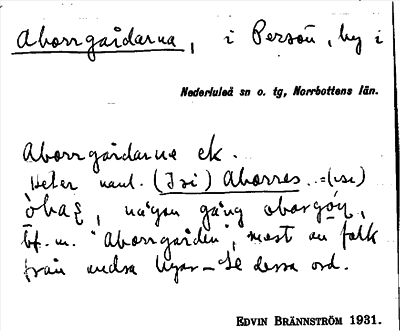 Aborrgårdarna, i Persön, by i
Nederluleå sn o. tg, Norrbottens län.
Aborrgårdarna ek.
Heter vanl. (Isi) Aborres =(isi)
någon gång
bf. m. "Aborrgården", mest av folk
från andra byar – Se dessa ord.
EDVIN BRÄNNSTRÖM 1931.